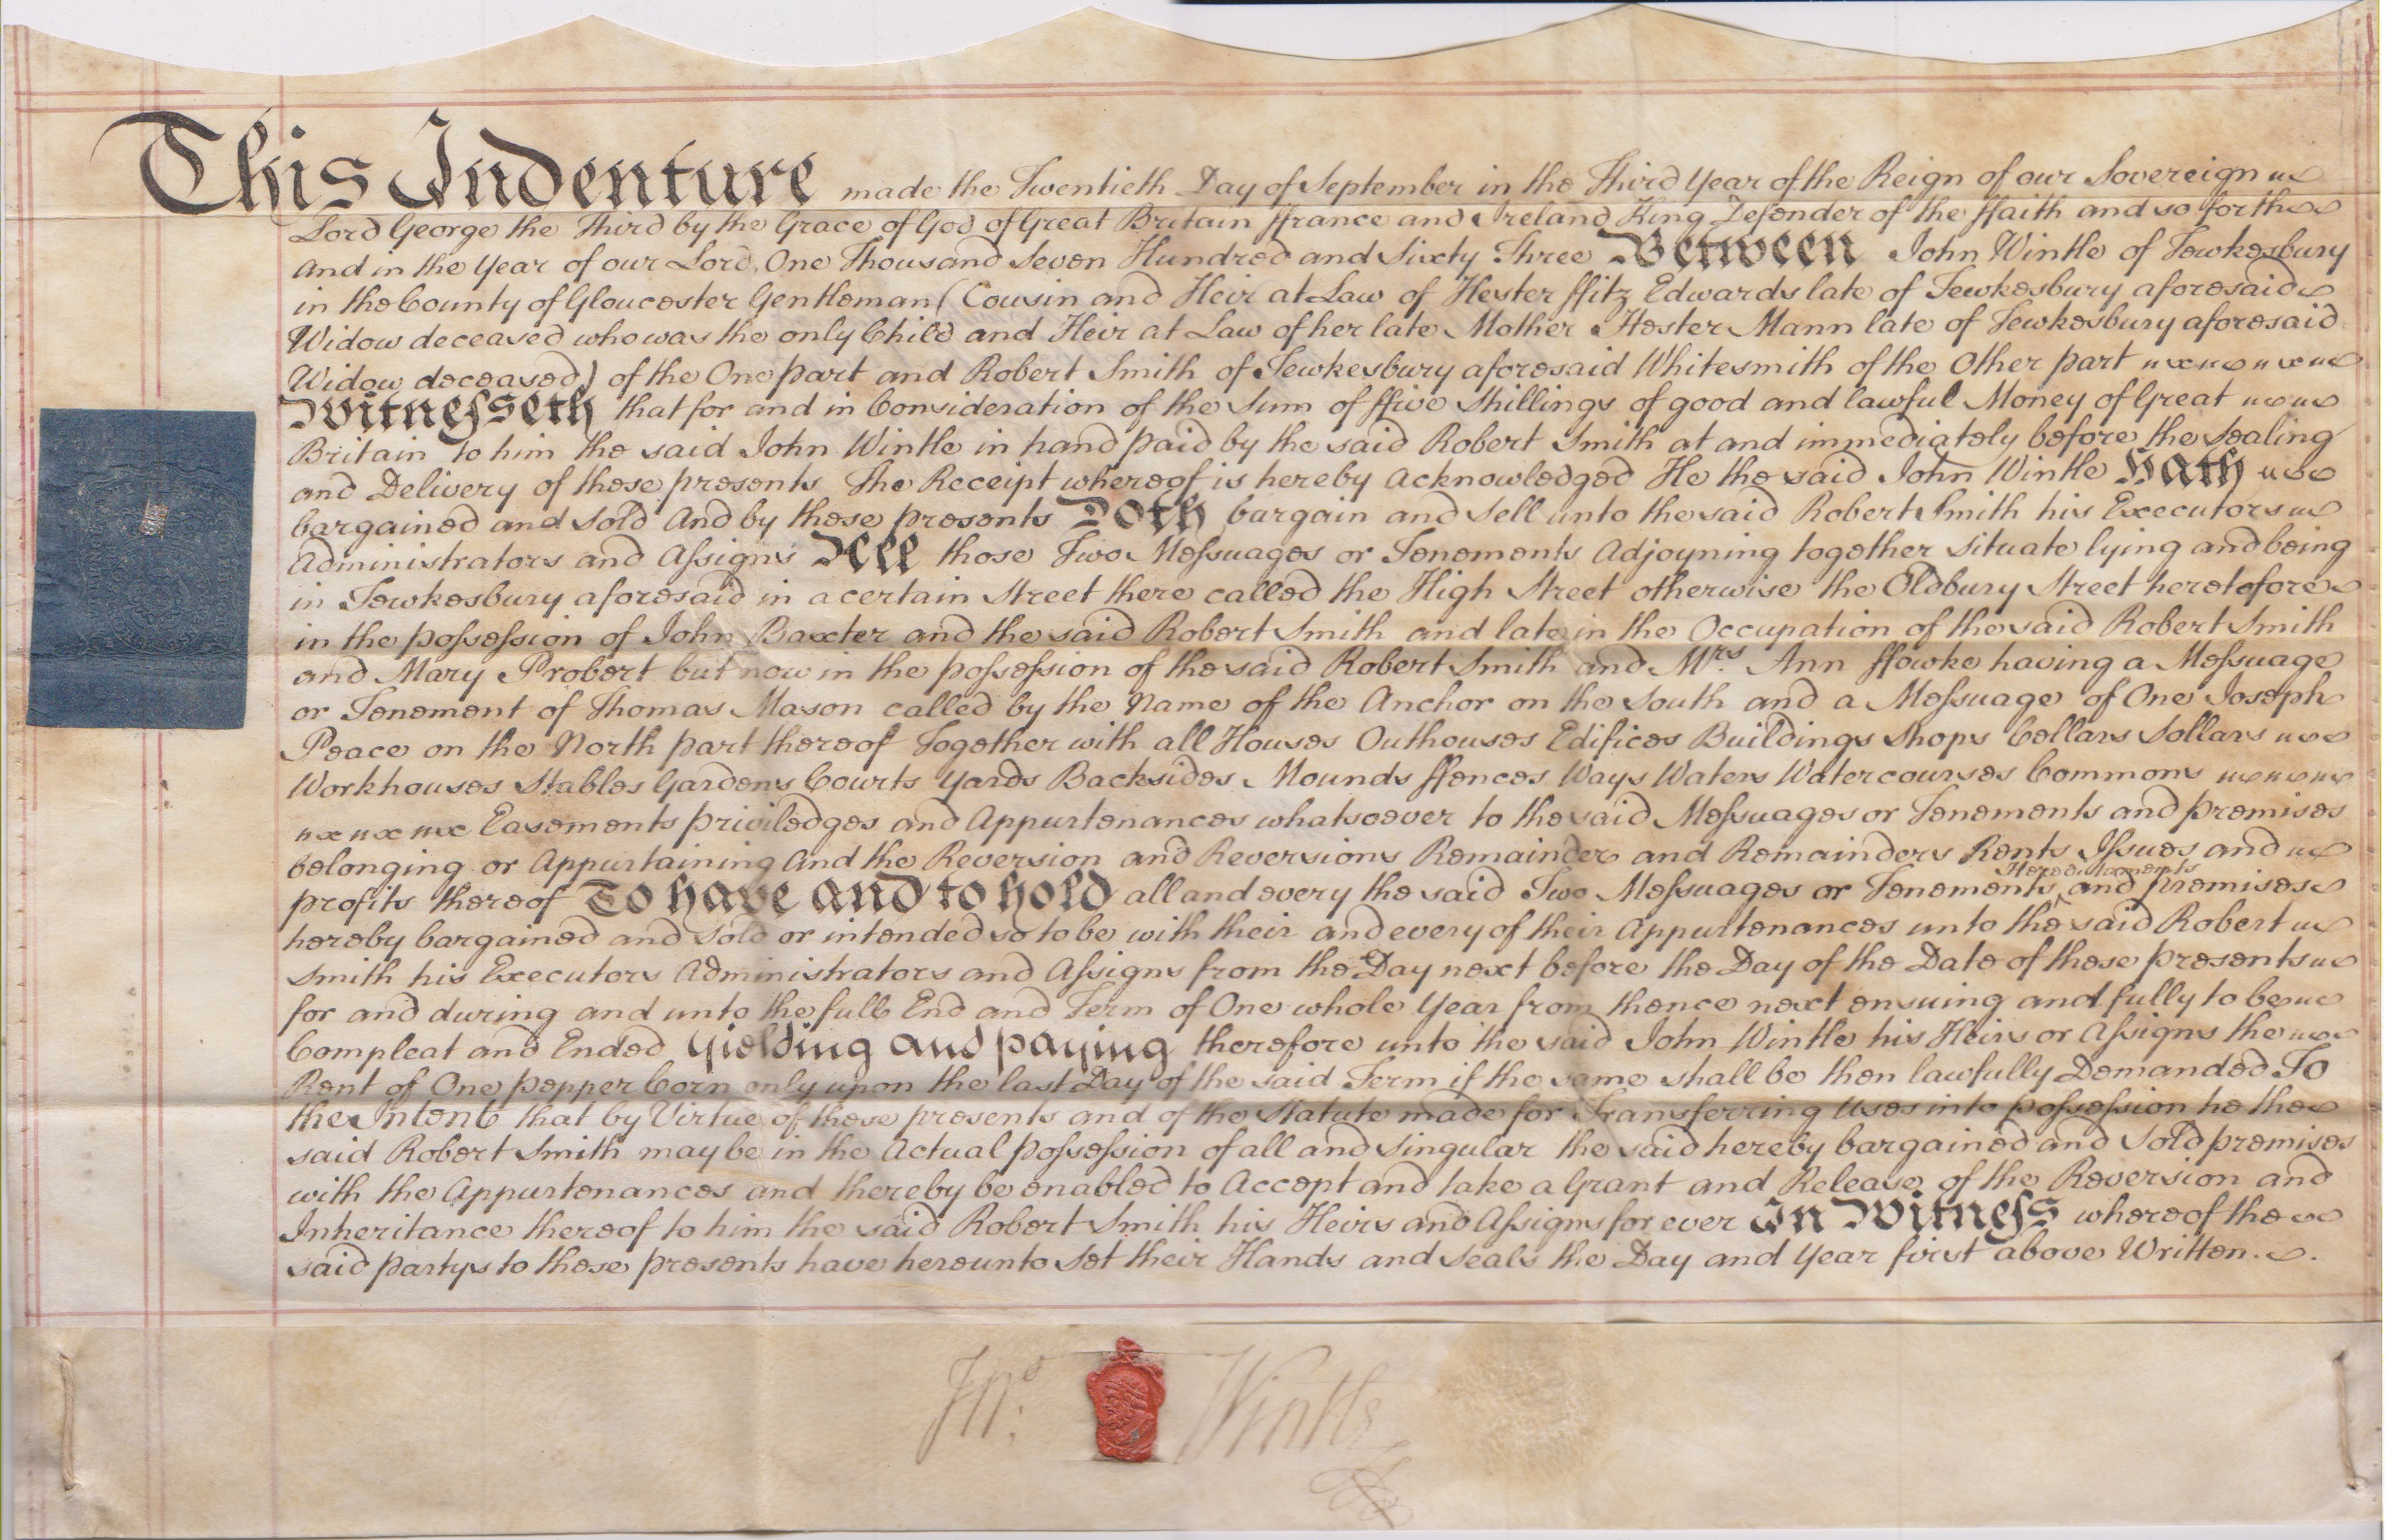 This Indenture made the Twentieth Day of September in the Third Year of the Reign of our Sovereign
Lord George the Third by the Grace of God of Great Britain ffrance and Ireland King Defender of the ffaith and so forth
and in the Year of our Lord One Thousand Seven Hundred and Sixty Three Between John Wintle of Tewkesbury
in the County of Gloucester Gentleman (Cousin and Heir at Law of Hester ffitz Edwards late of Tewkesbury aforesaid
Widow deceased who was the only Child and Heir at Law of her late Mother Hester Mann late of Tewkesbury aforesaid
Widow deceased) of the One part and Robert Smith of Tewkesbury aforesaid Whitesmith of the Other part
Witnesseth that for and in Consideration of the Sum of ffive Shillings of good and lawful Money of Great
Britain to him the said John Wintle in hand paid by the said Robert Smith at and immediately before the Sealing
and Delivery of these presents The Receipt whereof is hereby Acknowledged He the said John Wintle Hath
bargained and Sold And by these presents Doth bargain and Sell unto the said Robert Smith his Executors
Administrators and Assigns All those Two Messuages or Tenements Adjoyning together Situate lying and being
in Tewkesbury aforesaid in a certain Street there called the High Street otherwise the Oldbury Street heretofore
in the possession of John Baxter and the said Robert Smith and late in the Occupation of the said Robert Smith
and Mary Probert but now in the possession of the said Robert Smith and Mrs. Ann ffowke having a Messuage
or Tenement of Thomas Mason called by the Name of the Anchor on the South and a Messuage of One Joseph
Peace on the North part thereof Together with all Houses Outhouses Edifices Buildings Shops Cellars Sollars
Workhouses Stables Gardens Courts Yards Backsides Mounds ffences Ways Waters Watercourses Commons
Easements priviledges and Appurtenances whatsoever to the said Messuages or Tenements and premises
belonging or Appurtaining And the Reversion and Reversions Remainder and Remainders Rents Issues and
profits thereof To have and to hold all and every the said Two Messuages or Tenements Hereditaments and premises
hereby bargained and Sold or intended so to be with their and every of their Appurtenances unto the said Robert
Smith his Executors Administrators and Assigns from the Day next before the Day of the Date of these presents
for and during and unto the full End and Term of One whole Year from thence next ensuing and fully to be
Compleat and Ended Yielding and paying therefore unto the said John Wintle his Heirs or Assigns the
Rent of One pepper Corn only upon the last Day of the said Term if the same shall be then lawfully Demanded To
the Intent that by Virtue of these presents and of the Statute made for Transferring Uses into possession he the
said Robert Smith may be in the Actual possession of all and Singular the said hereby bargained and Sold premises
with the Appurtenances and thereby be enabled to Accept and take a Grant and Release of the Reversion and
Inheritance thereof to him the said Robert Smith his Heirs and Assigns for ever In Witness whereof the
said partys to these presents have hereunto Set their Hands and Seals the Day and Year first above Written.
Jno. Wintle